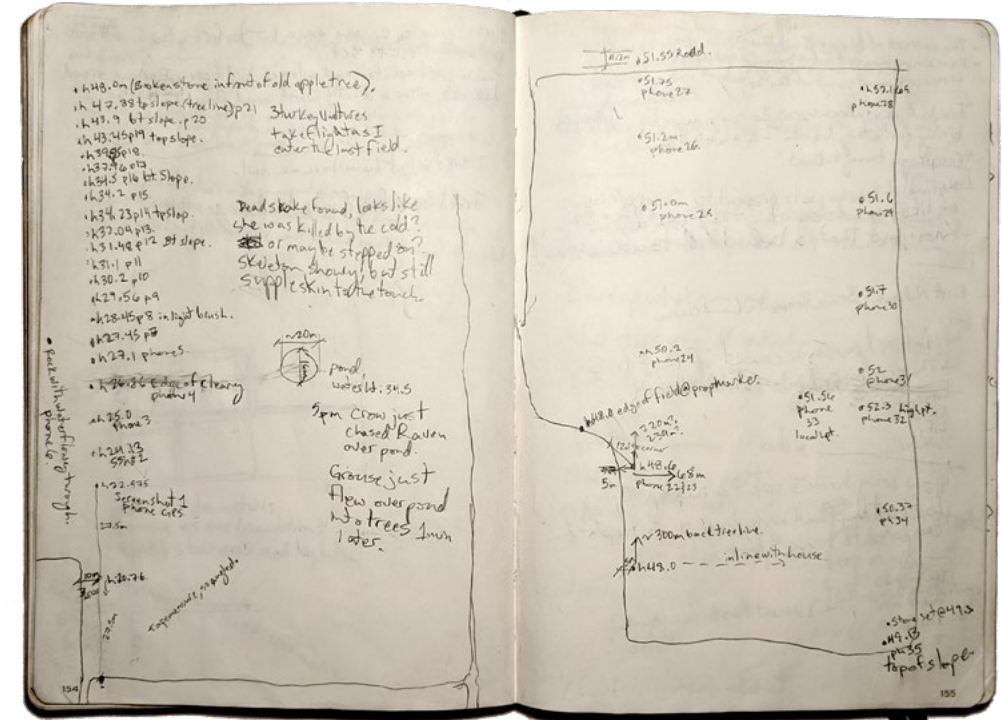 •h48.0m (Broken stone in front of old apple tree).
•h 47.88 tp slope (tree line) p21
•h 45.9 bt slope. p20
•h 43.45 p19 top slope.
p18.
p17
•h34.5 p16 bt. Slope.
•h34.2 p15.
•h34.23 p14 tp slop.
•h31.48 p12 Bt slope.
•h31.1 p11
•h30.2 p10
•h29.56 p9
•h28.45 p8 in light brush.
•h27.45 p7
•h27.1 phone5.
•h26.86 Edge of clearing
phone 4
•h25.0
Phone 3
•h22.975
Screenshot 1
Phone GPS
27.5m
h20.76
27.5m
Tape measure, so angled
• Rock with water flowing through.
phone 6.
3 turkey vultures
take flight as I
enter the last field.
Dead snake found, looks like
she was killed by the cold?
or maybe stepped on?
Skeleton showing, but still
supple skin to the touch.
~20m
16m
pond,
water ht: 34.5
5pm Crow just
chased Raven
over pond.
Grouse just
flew over pond
into trees 1min
later.
154
•51.55 Road.
•51.75
phone 27
phone 28
•51.2m.
phone 26.
•51.0m
phone 25.
•51.6
phone 29
•51.7
phone 30
•h50.2
phone 24
•52
phone 31
•52.3 high pt.
phone 32
•51.56
phone
33
local pt.
•h48.0 edge of field @ prop marker.
220m?
239m?
corner
h48.6
68m
phone 22/23
5m
•50.37
ph34
~300m back tree line.
•h48.0 in line with house.
•Stone set @ 49.3
•49.13
ph35
top of slope.
155